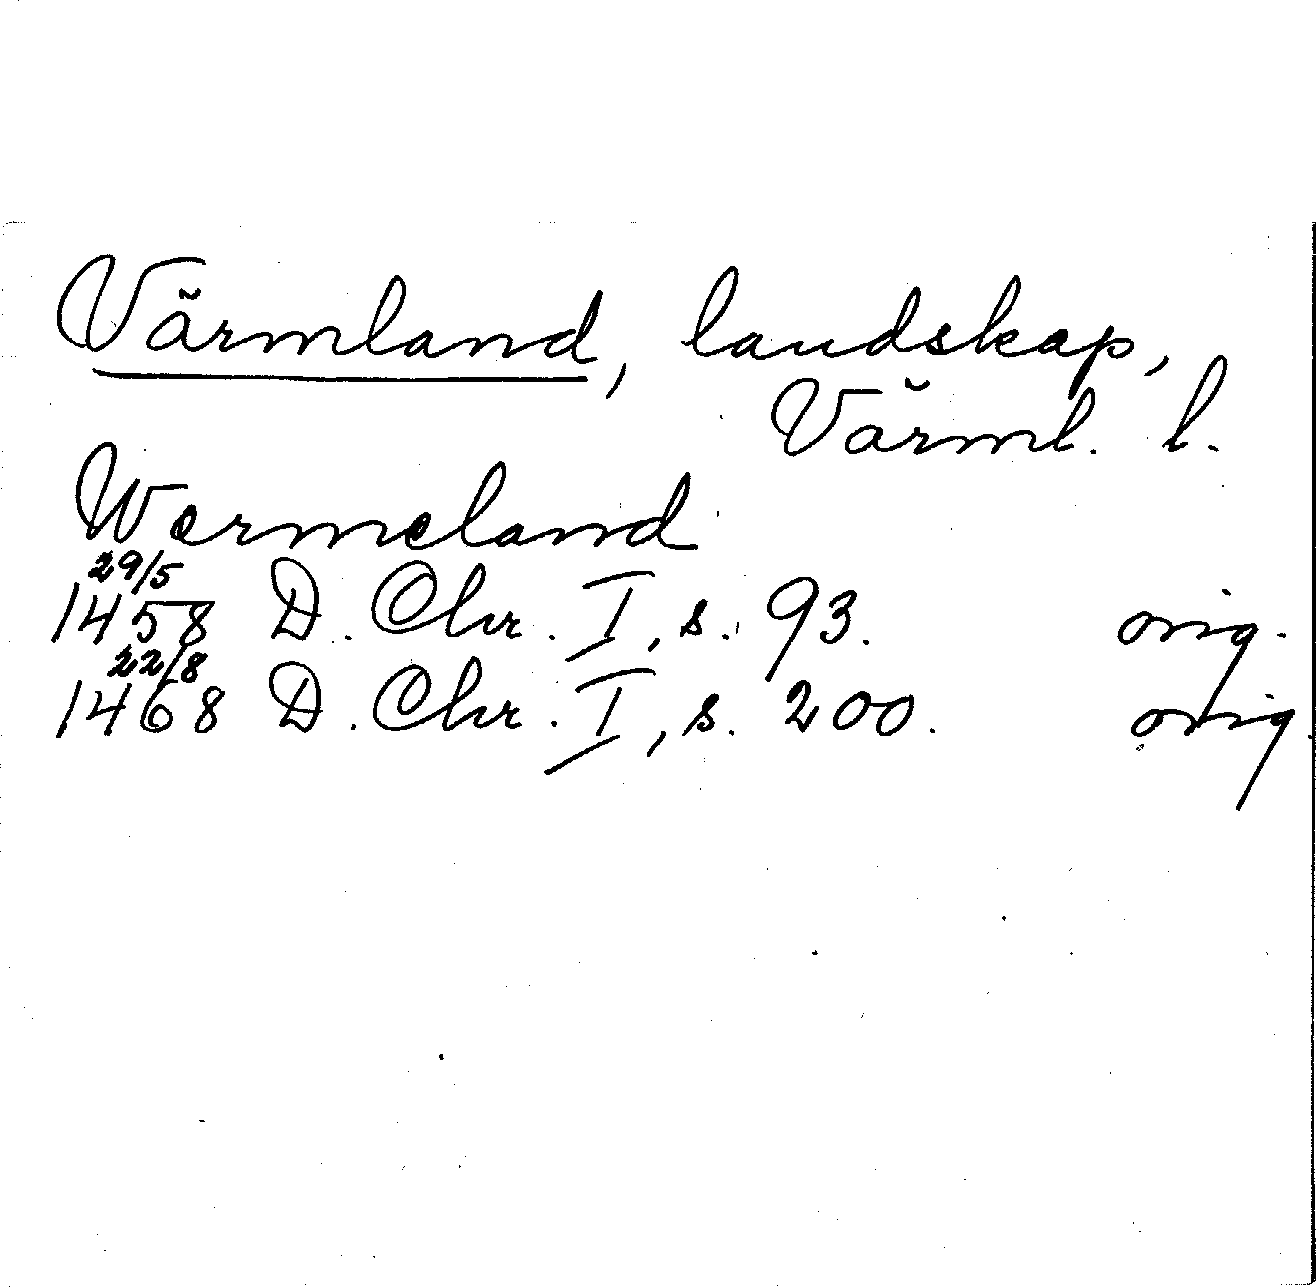 Värmland, landskap,
Värml. l.
Wermeland
29/5
1458 D. Chr. I, s. 93. orig.
22/8
1468 D. Chr. I, s. 200. orig